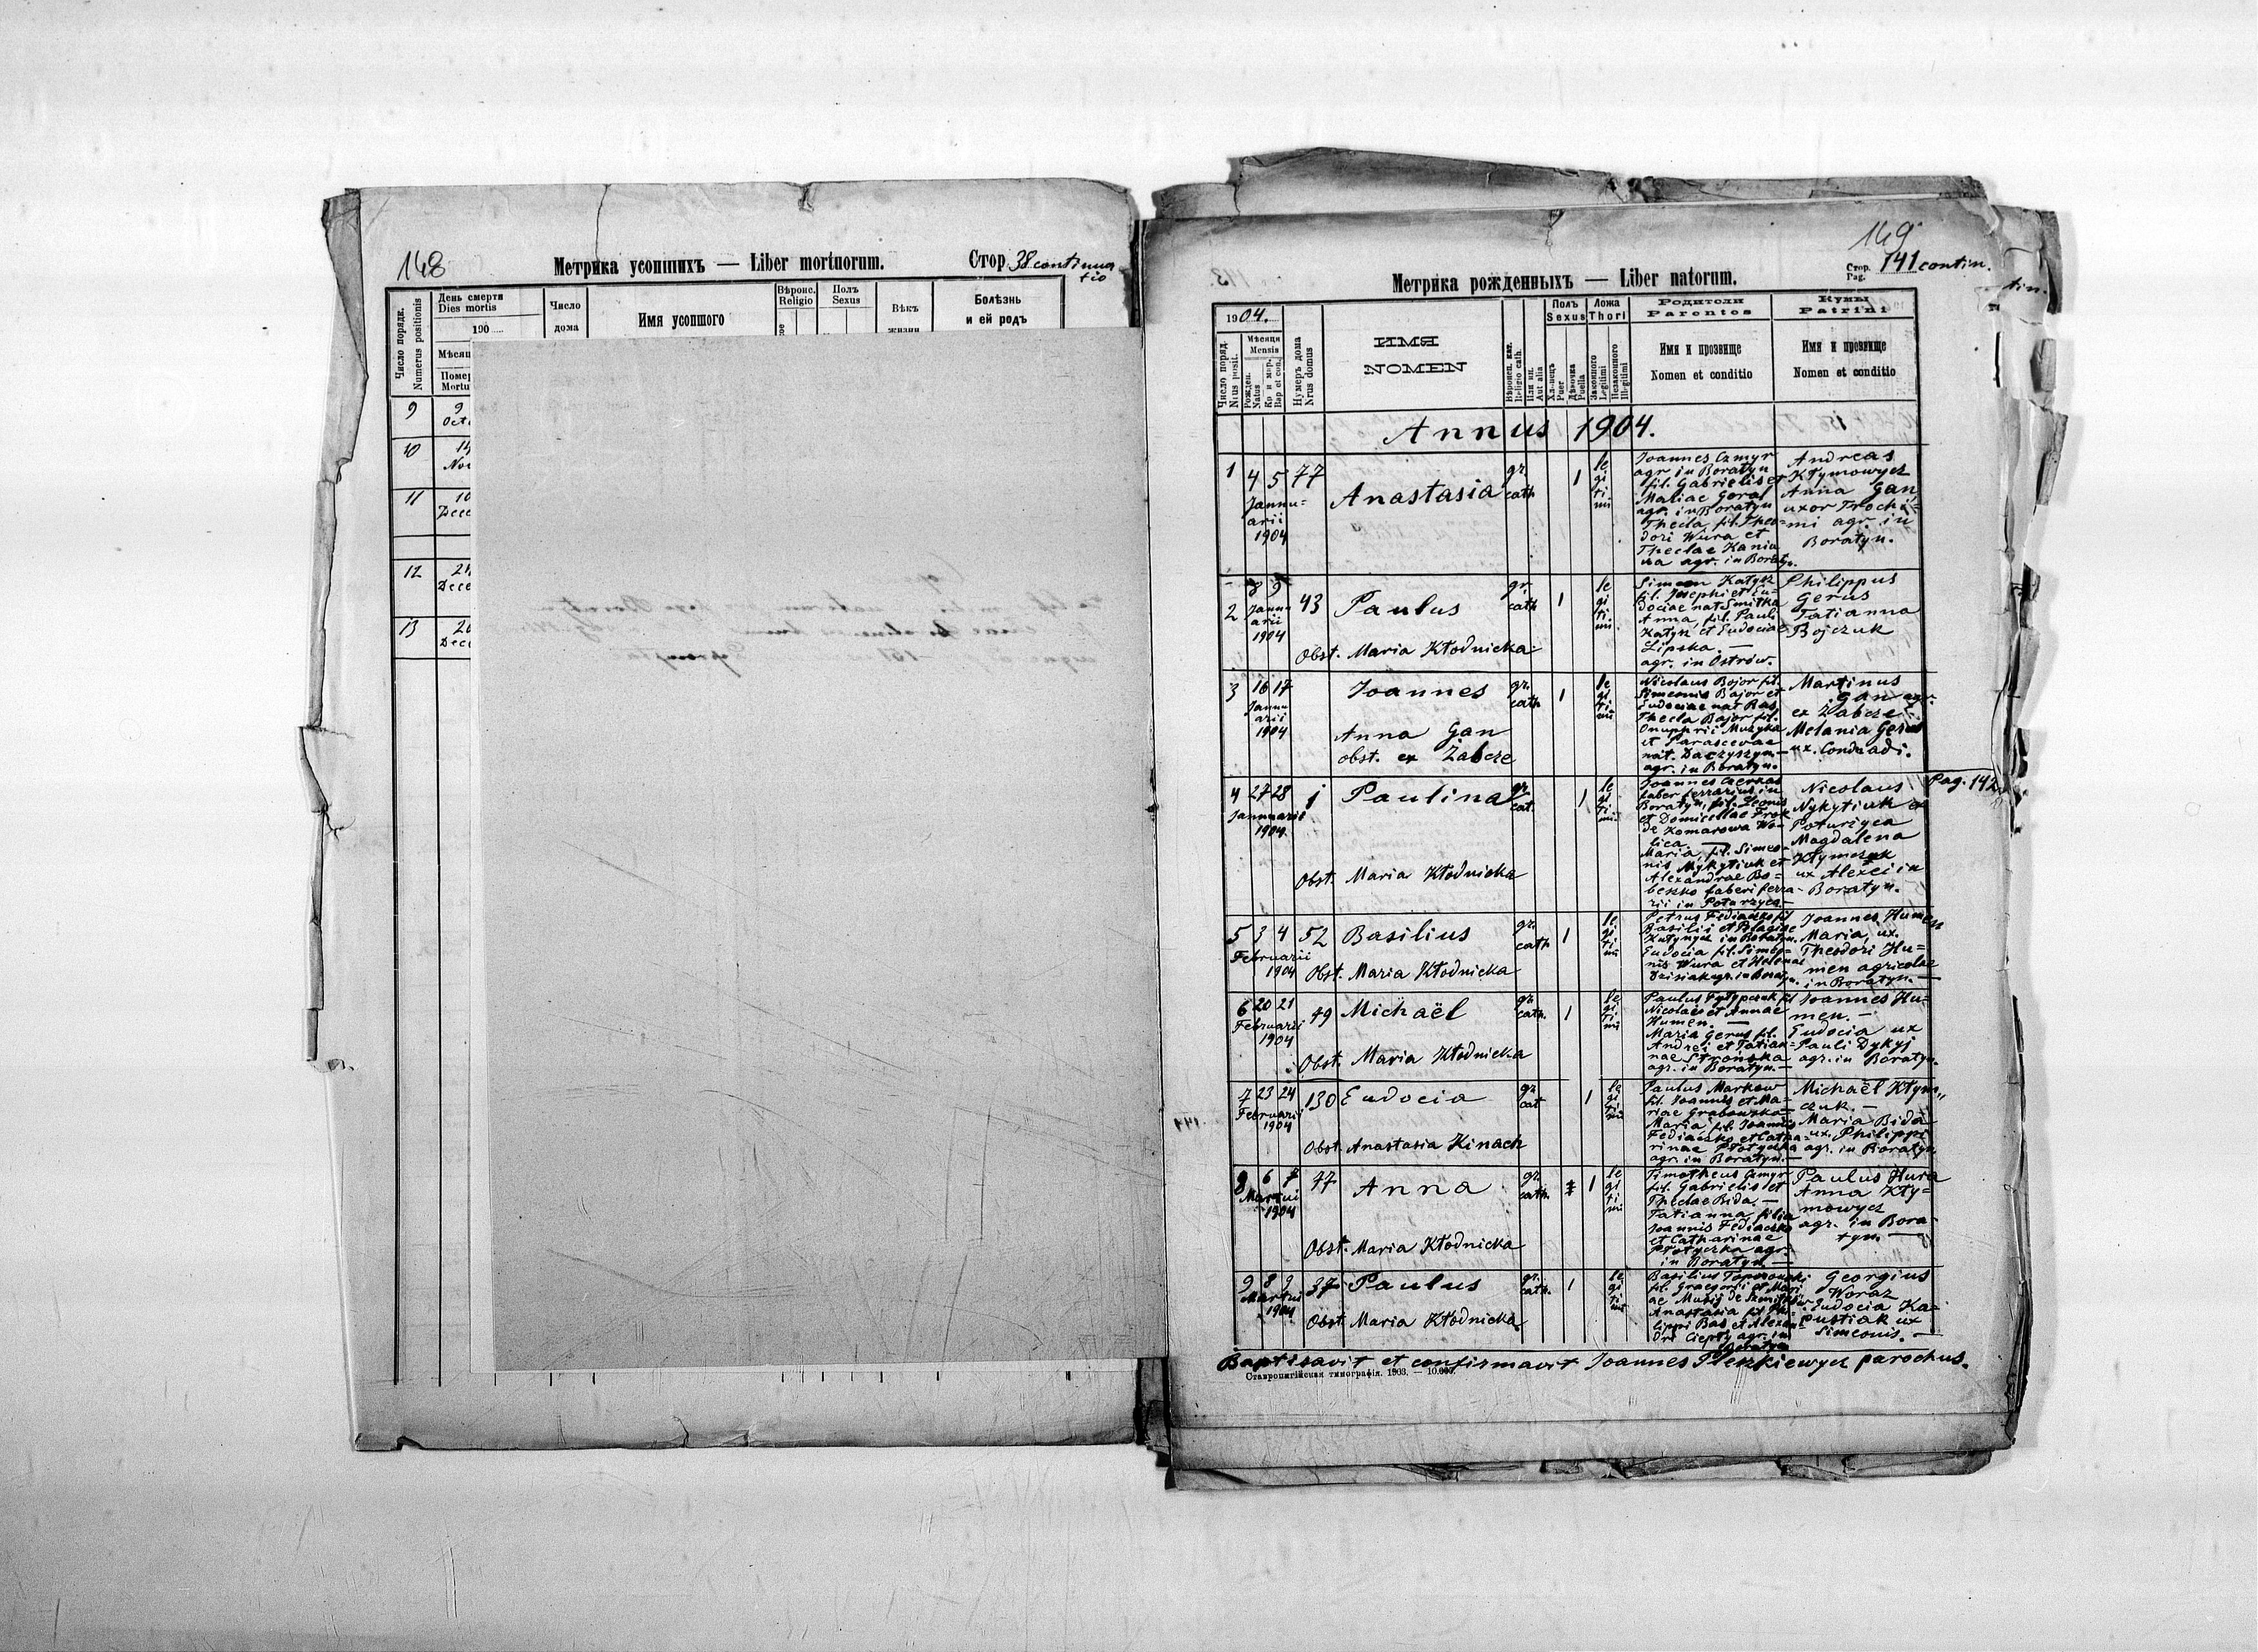 148
Метрика усопшихъ — Liber mortuorum.
Стор. 38 continua
tio
Число порядк.
Numerus positionis
День смерти
Dies mortis
190
Число
дома
Имя усопшого
Вѣроис.
Religio
Полъ
Sexus
Вѣкъ
жизни
Болѣзнь
и ей родъ
9 9
10 14
11 10
12 24
13
149
Стор.
Pag. 141 contin.
Метрика рожденныхъ — Liber natorum.
1904.
Число поряд.
Nrus posit.
Мѣсяця
Mensis
Рожден.
Natus
Кр и мѵр.
Bap et con.
Нумеръ дома
Nrus domus
ИМЯ
NOMEN
Вѣроисп. кат.
Religio cath.
Или ин.
Aut alia
Полъ
Sexus
Хлопець
Puer
Дѣвочка
Puella
Ложа
Thori
Законного
Legitimi
Незаконного
Illegitimi
Родители
Parentes
Имя и прозвище
Nomen et conditio
Кумы
Patrini
Имя и прозвище
Nomen et conditio
Annus 1904.
1 4 5 77
Januu=
arii
1904
Anastasia
gr.
cath
1
le
gi
ti
mi
Joannes Czmyr
agr in Boratyn
fil. Gabrielis et
Maliae Goral
agr. in Boratyn
Thecla, fil. Theo=
dori Wura et
Theclae Kania
agr. in Boratyn.
Andreas
Kłymowycz
Anna Gan,
uxor Trochi=
mi agr. in
Boratyn.
2 8 9 43
Janu
arii
1904
Paulus
Obst. Maria Kłodnicka
gr.
cath
1
le
gi
ti
mi.
Simeon Katycz
fil. Josephi et Eu=
dociae nat Smitka
Anna, fil. Pauli
Katyn et Eudociae
Lipska. —
agr. in Ostrów.
Philippus
Gerus
Tatianna
Bojczuk
3 16 17
Janu
arii
1904
Joannes
Anna Gan
obst. ex Żabcze
gr.
cath
1
le
gi
ti
mi
Nicolaus Bojor fil.
Simeonis Bajor et
Eudociae nat Bas,
Thecla Bajor fil.
Onuphrii Muzyka
et Parascevae
nat. Daczyszyn —
agr. in Boratyn.
Martinus
Gan agr.
ex Żabcze
Melania Gerus
ux. Conduadi.
4 27 28 1
Januarii
1904.
Paulina
Obst. Maria Kłodnicka
gr.
cat.
1
le
gi
ti
mi
Joannes Czerkas
faber ferrarius in
Boratyn, fil. Leonis
et Domicellae Frok
de Komarowa Wo=
lica. —
Maria, fil. Simeo=
nis Mykytiuk et
Alexandrae Bo=
beszko fabri ferra-
rii in Poturzyca.—
Nicolaus
Nykytiuk ex
Poturzyca
Magdalena
Kłymczuk
ux Alexei in
Boratyn.
Pag. 142
5 3 4 52
Februarii
1904
Basilius
Obst. Maria Kłodnicka
gr.
cath
1
le
gi
ti
mi
Petrus Fediaczko fil
Basilii et Pelagiae
Katynycz in Boratyn.
Eudocia fil. Simeo=
nis Wura et Helenae
Dzisiak agr. in Boratyn.
Joannes Humen
Maria, ux.
Theodori Hu=
men agricolae
in Boratyn. —
6 20 21 49
Februarii
1904
Michaël
Obst. Maria Kłodnicka
gr.
cath.
1
le
gi
ti
mi
Nicolai et Annae
Humen. —
Maria Gerus fil.
Andrei et Tatian=
nae Strońska
agr. in Boratyn.—
Joannes Hu=
men. —
Eudocia ux
Pauli Dykyj
agr. in Boratyn.
7 23 24 130
Februarii
1904
Eudocia
Obst. Anastasia Kinach
gr
cat
1
le
gi
ti
mi
Paulus Markow
fil. Joannis et Ma=
riae Grabowska
Maria fil. Joannis
Fediaczko et Catha=
rinae Płotyczka
agr. in Boratyn.—
Michaël Kłym„
czuk. —
Maria Bida
ux. Philippi
agr. in Boratyn.
8 6 7 77
Martii
1904
Anna
Obst. Maria Kłodnicka
gr.
cath.
1
le
gi
ti
mi
Timotheus Czmyr
fil. Gabrielis et
Theclae Bida —
Tatianna, filia
Joannis Fediaczko
et Catharinae
Płotyczka agr.
in Boratyn. —
Paulus Hura
Anna Kły=
mowycz
agr. in Bora-
tyn. —
9 8 9 37
Martii
1904
Paulus
Obst. Maria Kłodnicka.
gr.
cath.
1
le
gi
ti
mi
Basilius Toporowski
fil. Graegorii et Mari
Anastasia fil Phi=
lippi Bas et Alexan=
dri Ciepły agr. in
Boratyn
Georgius
Woraz
Eudocia Ka=
pustiak ux
Simeonis. —
Baptisavit et confirmavit Joannes Pleszkiewycz parochus.
Ставропигійская типографія. 1903. — 10.000.